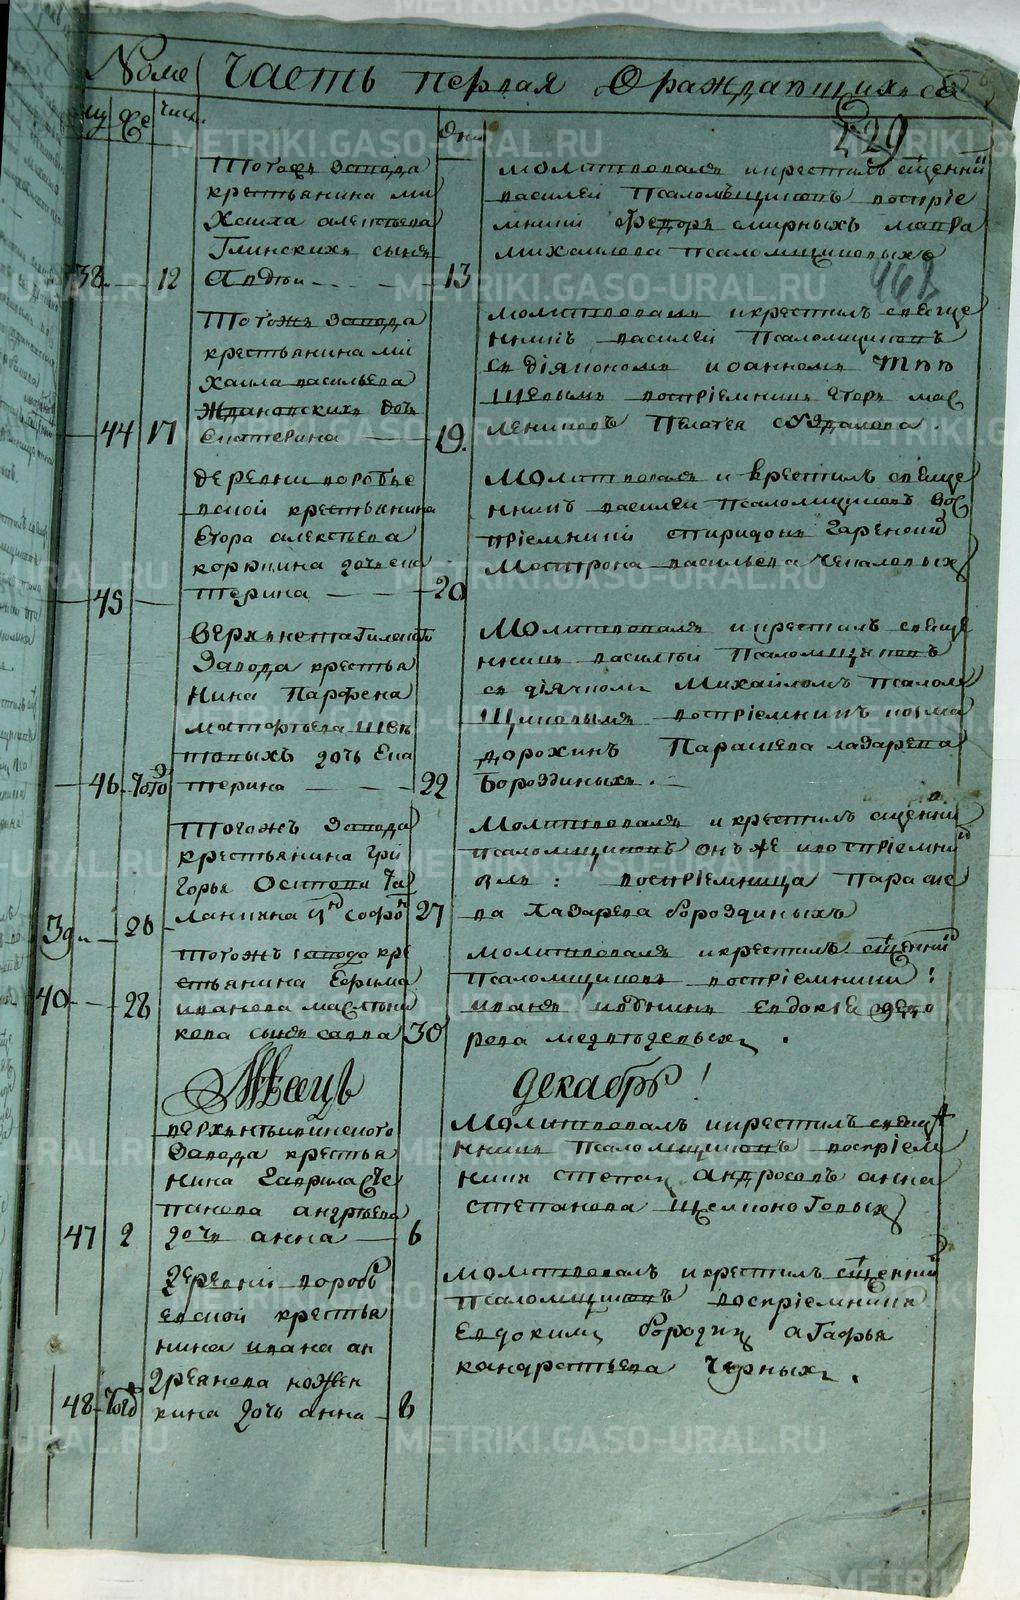 Номе Часть первая Ораждающихся
му же числ. Дни
529
468
Тогожъ Завода
крестьянина ми
хаила алексеева
Глинскихъ сынъ
38 12 Авдей 13
молитвовалъ икрестилъ сщенни
василей Псаломщиковъ воспрiе
мники Федоръ смирныхъ мавра
михайлова псаломщиковыхъ
Тогожъ Завода
крестьянина ми
хаила васильева
Ждановскихъ дочь
44 17 Екатерина 19.
молитвовалъ икрестилъ свеще
нникъ василей Псаломщиковъ
съ дiякономъ иоанномъ
воспрiемники егоръ мас
лениковъ Пелагея суздалова.
деревни воробье
вской крестьянина
Егора алексеева
корюкина дочь ека
45 терина 20
Молитвовалъ и крестилъ свеще
нникъ василей Псаломщиковъ вос
прiемники спиридонъ
Матрона васильева
Верхнетагилскаго
Завода крестья
нина Парфена
матфеева
дочь Ека
46 Того терина 22
Молитвовалъ икрестилъ свеще
нникъ василей Псаломщиковъ
съ дiячкомъ Михаиломъ Псалом
щиковымъ воспрiемникъ козма
дорохинъ Парасшева лазарева
Бороздиныхъ.
Тогожъ Завода
крестьянина Гри
горья Осипова Га
39 26 ланкина сынъ софон 27
Молитвовалъ и крестилъ сщенни
псаломщиковъ онъже ивоспрiемни
комъ: воспрiемница Параске
ва Лазарева бороздиныхъ
тогожъ завода кре
стьянина Ефима
40 28 иванова маслени
кова сынъ савва 30
молитвовалъ икрестилъ сщенни
Псаломщиковъ воспрiемники:
иванъ Евдокiя федо
рова медведевыхъ.
Месяцъ декабрь!
верхнетагилскаго
Завода крестья
нина Гаврила Сте
панова андреева
47 2 дочь анна 6
Молитвовалъ икрестилъ свеще
нникъ Псаломщиковъ воспрiем
ники степанъ андросовъ анна
степанова Щелконоговыхъ
деревни воробь
евской крестья
нина ивана ан
дреянова ножев
48 Тогожъ кина дочь анна 6
молитвовалъ икрестилъ сщенни
Псаломщиковъ воспрiемники
Евдокимъ бородин агафья
кандратьева Черныхъ.
METRIKI.GASO-URAL.RU